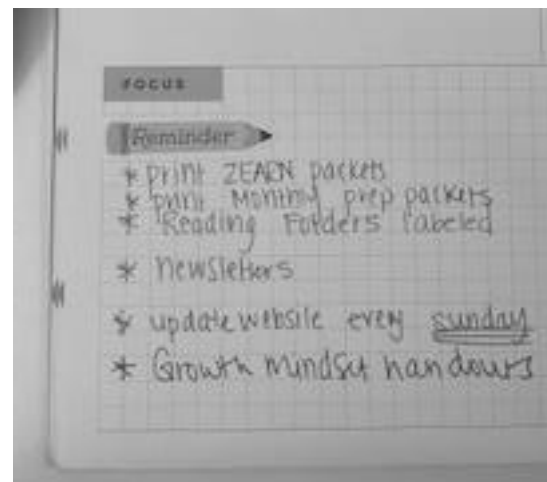 FOCUS
Reminder
* print ZEARN packets
* print Monthly prep packets
* Reading Folders labeled
* newsletters
* update website every sunday
* Growth mindset handouts